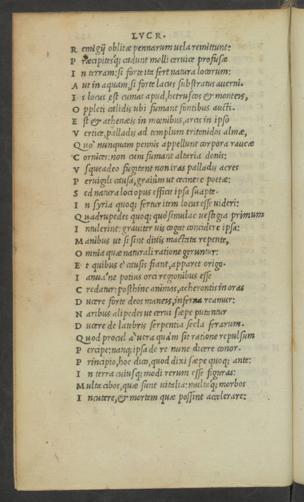 LVCR.
R emigij oblitæ pennarum uela remittunt:
P ræcipitesq; cadunt molli ceruice profusæ
I n terram: si forte ita fert natura locorum:
A ut in aquam, si forte lacus substratus auerni.
I s locus est cumas apud, hetruscos & montes,
O ppleti calidis ubi fumant fontibus aucti.
E st & athenæis in mœnibus, arcis in ipso
V ertice, palladis ad templum tritonidos almæ,
Q uo nunquam pennis appellunt corpora raucæ
C ornices: non cum fumant altaria donis:
V squeadeo fugitent non iras palladis acres
P eruigili causa, graiûm ut cecinere poetæ:
S ed natura loci opus efficit ipsa suapte.
I n syria quoq; fertur item locus esse uideri:
Q uadrupedes quoq; quò simulac uestigia primum
I ntulerint: grauiter uis cogat concidere ipsa:
M anibus ut si sint diuis mactata repente,
O mnia quæ naturali ratione geruntur:
E t quibus è causis fiant, apparet origo.
I anua ne potius orci regionibus esse
C redatur: posthinc animas, acherontis in oras
D ucere forte deos maneis, inferna reamur:
N aribus alipedes ut cerui sæpe putantur
D ucere de latebris serpentia secla ferarum.
Q uod procul a uera quàm sit ratione repulsum
P ercipe: nanq; ipsa de re nunc dicere conor.
P rincipio, hoc dico, quod dixi sæpe quoq; ante:
I n terra cuiusq; modi rerum esse figuras:
M ulta cibos, quæ sunt uitalia: multaq; morbos
I ncutere, & mortem quæ possint accelerare: